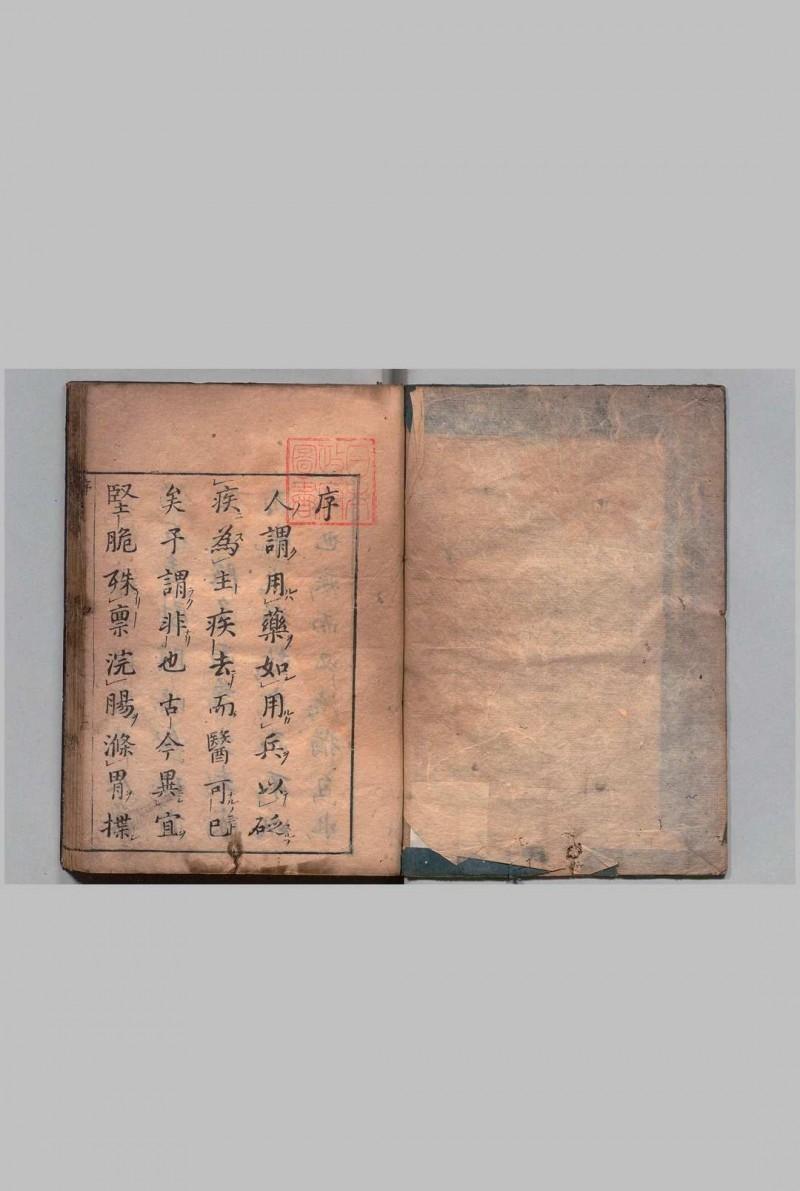 序
人謂用藥如用兵以砭
疾為主疾去而醫可已
矣予謂非也古今異宜
堅脆殊禀浣腸滌胃揲